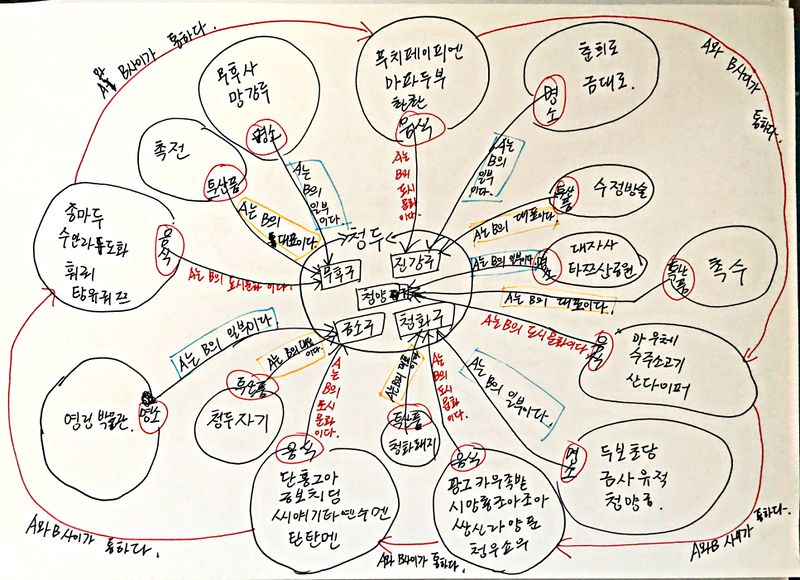 A와 B사이가 통하다.
무후사
망강루
명소
푸치페이피엔
마파두부
촨촨
음식
춘희로
금대로.
명소
A와 B사이가 통하다.
촉전
특산품
A는 B의 일부이다.
A는 B의 도시문화이다.
A는 B의 일부이다.
특산품
수정방술
A는 B의 대표이다.
총마두
음식
A는 B의 대표이다.
청두
무후구
진강구
청양구
금소구
청화구
A는 B의 일부이다.
명소
대자사
타쯔산공원
특산품
촉수
A는 B의 대표이다.
A는 B의 도시문화이다.
A는 B의 도시문화이다.
음식
마우체
수주소고기
산다이퍼
A는 B의 일부이다.
명소
영린 박물관.
특산품
청두자기
A는 B의 대표이다.
A는 B의 도시문화이다.
A는 B의 대표이다.
특산품
청화돼지
A는 B의 도시문화이다.
A는 B의 일부이다.
명소
두보초당
금사유적
청양궁.
음식
단홍고아
궁보치딩
탄탄멘
음식
A와 B사이가 통하다.
A와 B사이가 통하다.
A와 B사이가 통하다.